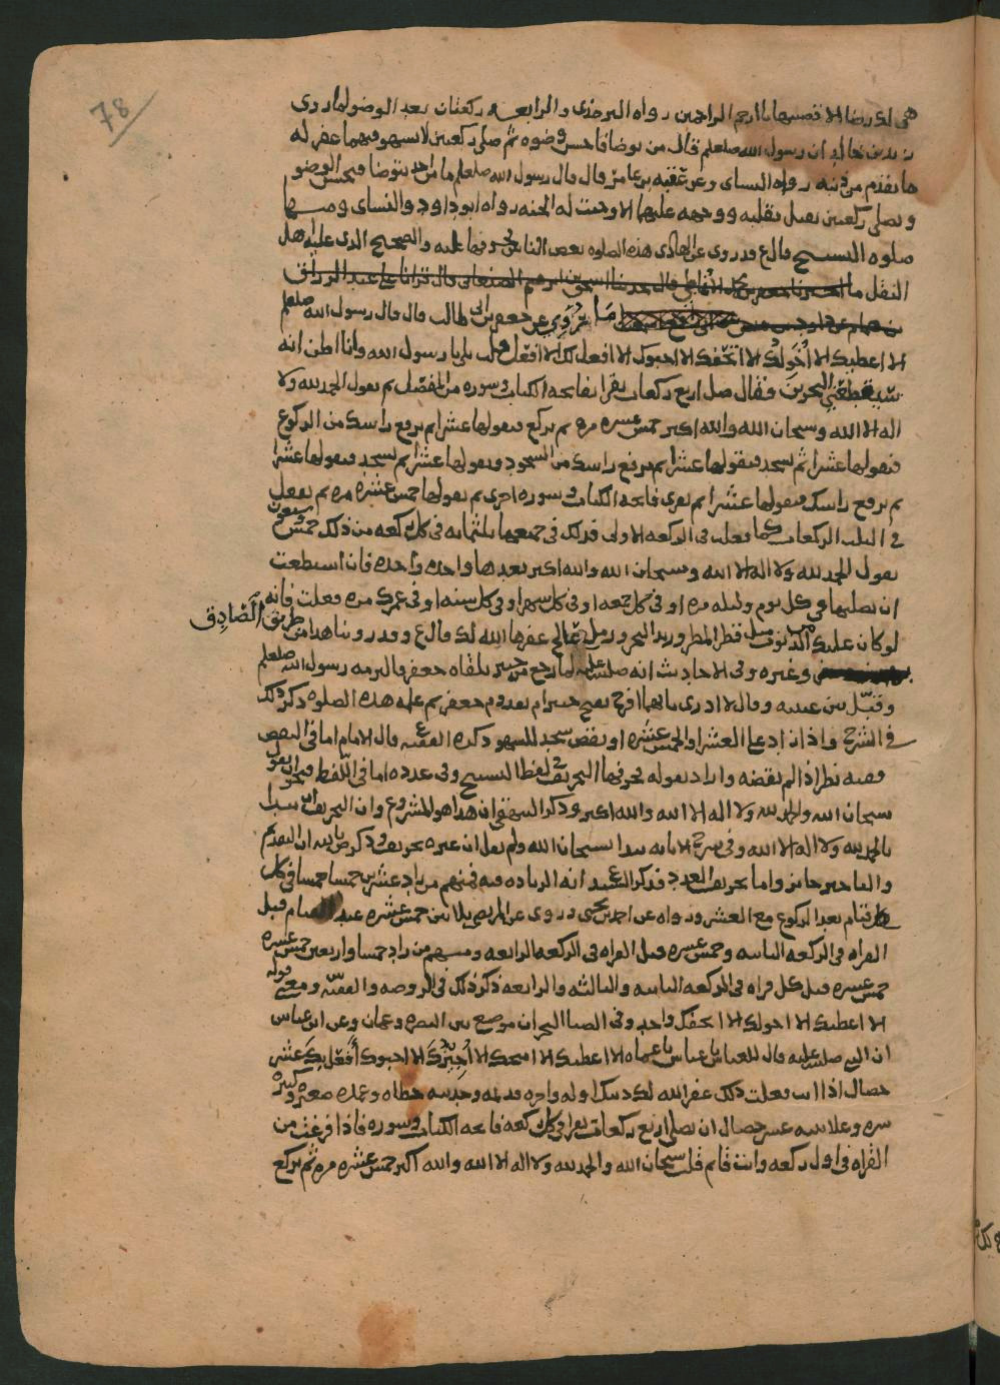 هي لك رضا الا قضيتها يا ارحم الراحمين رواه الترمذي والرابعه ركعتان بعد الوضو لما روى
زيد بن خالد ان رسول الله صلعلم قال من توضا فاحسن وضوه ثم صلى ركعتين لا يسهو فيهما غفر له
ما تقدم من ذنبه رواه النساى وعن عقبه بن عامر قال قال رسول الله صلعلم ما من احد يتوضا فيحسن الوضو
ويصلي ركعتين يقبل بقلبه ووجهه عليهما الا وجبت له الجنه رواه ابو داود والنساى ومنها
صلوه التسبيح قال ع قد روى عن الهادى هذه الصلوه بعض الناس فيها عليه والصحيح الذى عليه اهل
النقل ما
ما روى عن جعفر بن ابى طالب قال قال رسول الله صلعلم
الا اعطيك الا اخولك الا اتحفك الا احبوك الا افعل لك الا افعل قلت بلى يا رسول الله وانا اظن انه
البحرين فقال صل اربع ركعات تقرا بفاتحه الكتاب وسوره من المفصل ثم تقول الحمد لله ولا
اله الا الله وسبحان الله والله اكبر خمس عشره مره ثم تركع فتقولها عشرا ثم ترفع راسك من الركوع
فتقولها عشرا ثم تسجد فتقولها عشرا ثم ترفع راسك من السجود وتقولها عشرا ثم تسجد فتقولها عشرا
ثم ترفع راسك فتقولها عشرا ثم تقرى فاتحه الكتاب وسوره اخرى ثم تقولها خمس عشره مره ثم تفعل
في الثلث الركعات كما فعلت في الركعه الاولى فذلك في جميعها ثلثمائه في كل ركعه من ذلك خمس وسبعون
تقول الحمد لله ولا اله الا الله وسبحان الله والله اكبر تعدها واحده واحده فان استطعت
ان تصليها في كل يوم وليله مره او في كل جمعه او في كل شهر او في كل سنه او في عمرك مره فعلت فانه
لو كان عليك من الذنوب مثل قطر المطر وزبد البحر ورمل عالج غفرها الله لك قال ع وقد روينا هذا من طريق الصادق
وغيره وفي الاحاديث انه صلى الله عليه لما رجع من خيبر تلقاه جعفر فالتزمه رسول الله صلعلم
وقبل بين عينيه وقال لا ادرى بايهما افرح بفتح خيبر ام بقدوم جعفر ثم علمه هذه الصلوه ذكر ذلك
في الشرح واذا زاد على العشر او الخمس عشره او نقص سجد للسهو ذكره الفقيه قال الامام اما في النقص
ففيه نظر اذا لم ينقضه واراد بقوله بحرفها التحريف في لفظ التسبيح وفي عدده اما في اللفظ فنحو ان يقول
سبحان الله والحمد لله ولا اله الا الله والله اكبر وذكر البيهقي ان هذا هو المشروع وان التحريف ان يبدا
بالحمد لله ولا اله الا الله وفي شرح الابانه يبدا بسبحان الله ولم يقل ان غيره تحريف وذكر ان التقديم
والتاخير جائز واما تحريف العدد فذكر الفقيه انه الزياده فيه فمنهم من زاد عشرين خمسا خمسا في كل
قيام بعد الركوع مع العشر ورواه عن احمد بن يحيى وروى عن المرتضى ثلاثين خمس عشره عند القيام قبل
القراه في الركعه الثانيه وخمس عشره قبل القراه في الركعه الرابعه ومنهم من زاد خمسا واربعين خمس عشره
خمس عشره قبل كل قراه في الركعه الثانيه والثالثه والرابعه ذكر ذلك في الروضه والفقيه ومعنى قوله
الا اعطيك الا اخولك الا اتحفك واحد وفي الضيا البحران موضع بين البصره وعمان وعن ابن عباس
ان النبى صلى الله عليه قال للعباس يا عباس يا عماه الا اعطيك الا امنحك الا اجيزك الا احبوك الا افعل بك عشر
خصال اذا انت فعلت ذلك غفر الله لك ذنبك اوله واخره قديمه وحديثه خطاه وعمده صغيره وكبيره
سره وعلانيته عشر خصال ان تصلي اربع ركعات تقرا في كل ركعه فاتحه الكتاب وسوره فاذا فرغت من
القراه في اول ركعه وانت قائم قلت سبحان الله والحمد لله ولا اله الا الله والله اكبر خمس عشره مره ثم تركع
78